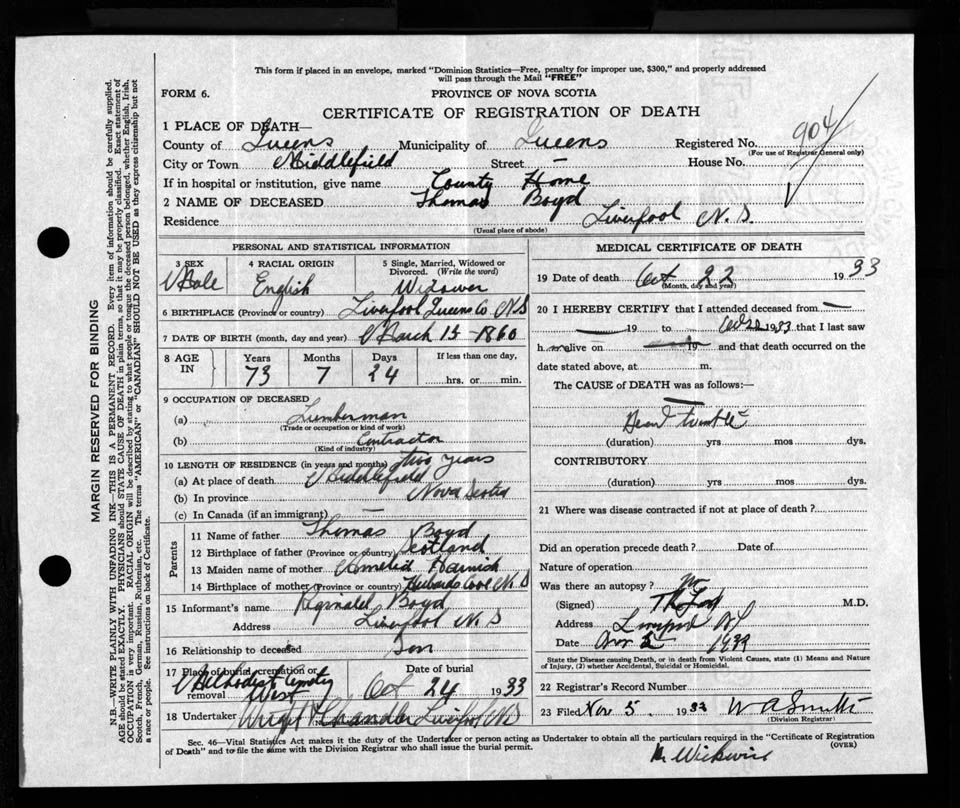 This form if placed in an envelope, marked "Dominion Statistics—Free, penalty for improper use, $300," and properly addressed
will pass through the Mail "FREE"
FORM 6. PROVINCE OF NOVA SCOTIA
CERTIFICATE OF REGISTRATION OF DEATH
1 PLACE OF DEATH—
County of Queens Municipality of Queens Registered No. 904
(For use of Registrar General only)
City or Town Middlefield Street — House No.
If in hospital or institution, give name County Home
2 NAME OF DECEASED Thomas Boyd
Residence Liverpool N.S.
(Usual place of abode)
PERSONAL AND STATISTICAL INFORMATION
3 SEX Male
4 RACIAL ORIGIN English
5 Single, Married, Widowed or Divorced. (Write the word) Widower
6 BIRTHPLACE (Province or country) Liverpool Queens Co N S
7 DATE OF BIRTH (month, day and year) March 15 - 1860
8 AGE IN Years 73 Months 7 Days 24 If less than one day, hrs. or min.
9 OCCUPATION OF DECEASED
(a) Lumberman
(Trade or occupation or kind of work)
(b) Contractor
(Kind of industry)
10 LENGTH OF RESIDENCE (in years and months) two years
(a) At place of death Middlefield
(b) In province Nova Scotia
(c) In Canada (if an immigrant) —
Parents
11 Name of father Thomas Boyd
12 Birthplace of father (Province or country) Scotland
13 Maiden name of mother Amelia
14 Birthplace of mother (Province or country) Cove N.S
15 Informant's name Reginald Boyd
Address Liverpool N.S
16 Relationship to deceased Son
17 Place of burial, cremation or removal Methodist Cemetery West
Date of burial Oct 24 1933
18 Undertaker Wright Chandler Liverpool N S
MEDICAL CERTIFICATE OF DEATH
19 Date of death Oct 22 1933
(Month, day and year)
20 I HEREBY CERTIFY that I attended deceased from —
— 19 to Oct 22 1933 that I last saw
h alive on 19 and that death occurred on the
date stated above, at m.
The CAUSE of DEATH was as follows:—
Heart trouble
(duration) yrs mos dys.
CONTRIBUTORY
(duration) yrs. mos. dys.
21 Where was disease contracted if not at place of death?
Did an operation precede death? Date of
Nature of operation
Was there an autopsy? No
(Signed) M.D.
Address Liverpool
Date Nov 2 1933
State the Disease causing Death, or in death from Violent Causes, state (1) Means and Nature
of Injury, (2) whether Accidental, Suicidal or Homicidal.
22 Registrar's Record Number
23 Filed Nov 5. 1933 W A Smith
(Division Registrar)
Sec. 46—Vital Statistics Act makes it the duty of the Undertaker or person acting as Undertaker to obtain all the particulars required in the "Certificate of Registration
of Death" and to file the same with the Division Registrar who shall issue the burial permit. (OVER)
Wickwire
MARGIN RESERVED FOR BINDING
N.B.—WRITE PLAINLY WITH UNFADING INK—THIS IS A PERMANENT RECORD. Every item of information should be carefully supplied.
AGE should be stated EXACTLY. PHYSICIANS should STATE CAUSE OF DEATH in plain terms, so that it may be properly classified. Exact statement of
OCCUPATION is very important. RACIAL ORIGIN will be described by stating to what people or tongue the deceased person belonged, whether English, Irish,
Scotch, French, German, Russian, Ruthenian, etc. The terms "AMERICAN" or "CANADIAN" SHOULD NOT BE USED as they express citizenship but not
a race or people. See instructions on back of Certificate.